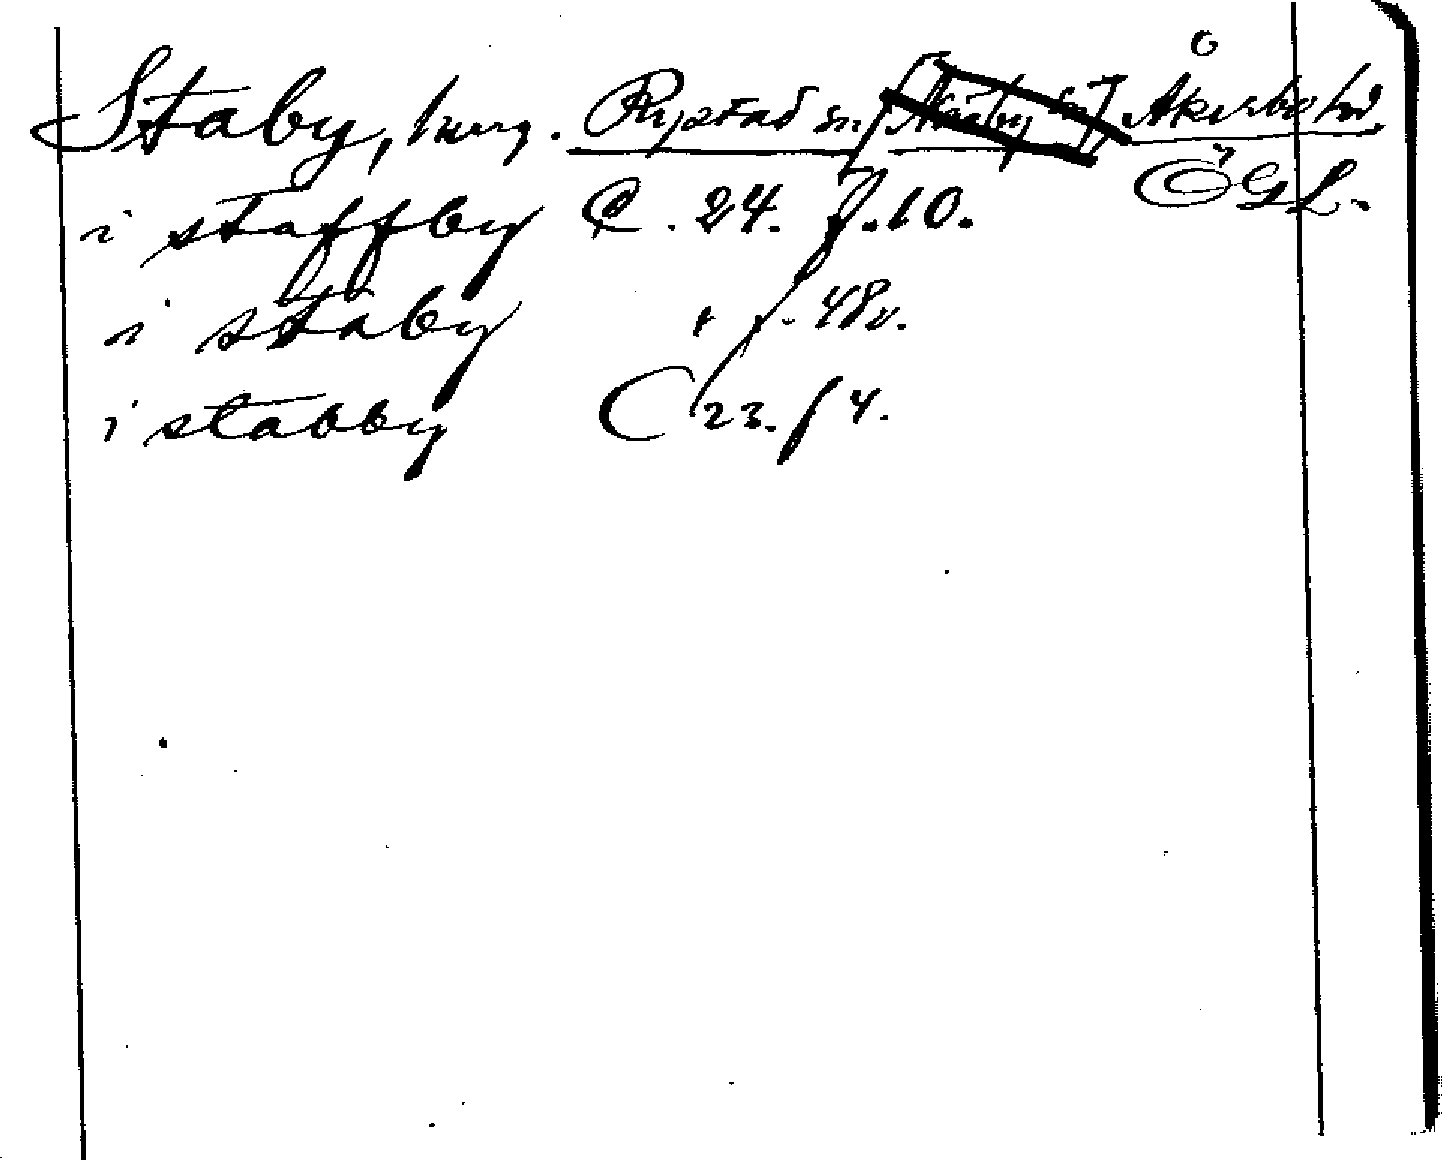 Staby, herg. Rystad sn Åkerbo hd
ÖGL.
i staffby C. 24. f. 10.
i staby " f. 48v.
i stabby C 23. f 4.